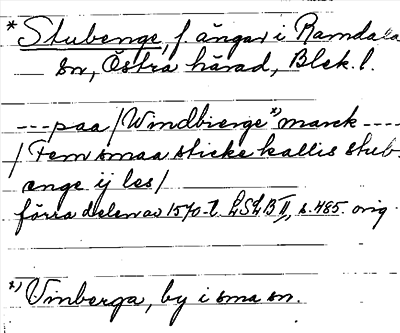 *Stubenge, f. ängar i Ramdala
sn, Östra härad, Blek. l.
---paa /Windbierge *) marck ----
/ Fem smaa sticke kallis stub-
enge ij les /
förra delen av 1570-t. LSLB II, s. 485. orig.
*) Vinberga, by i sma sn.